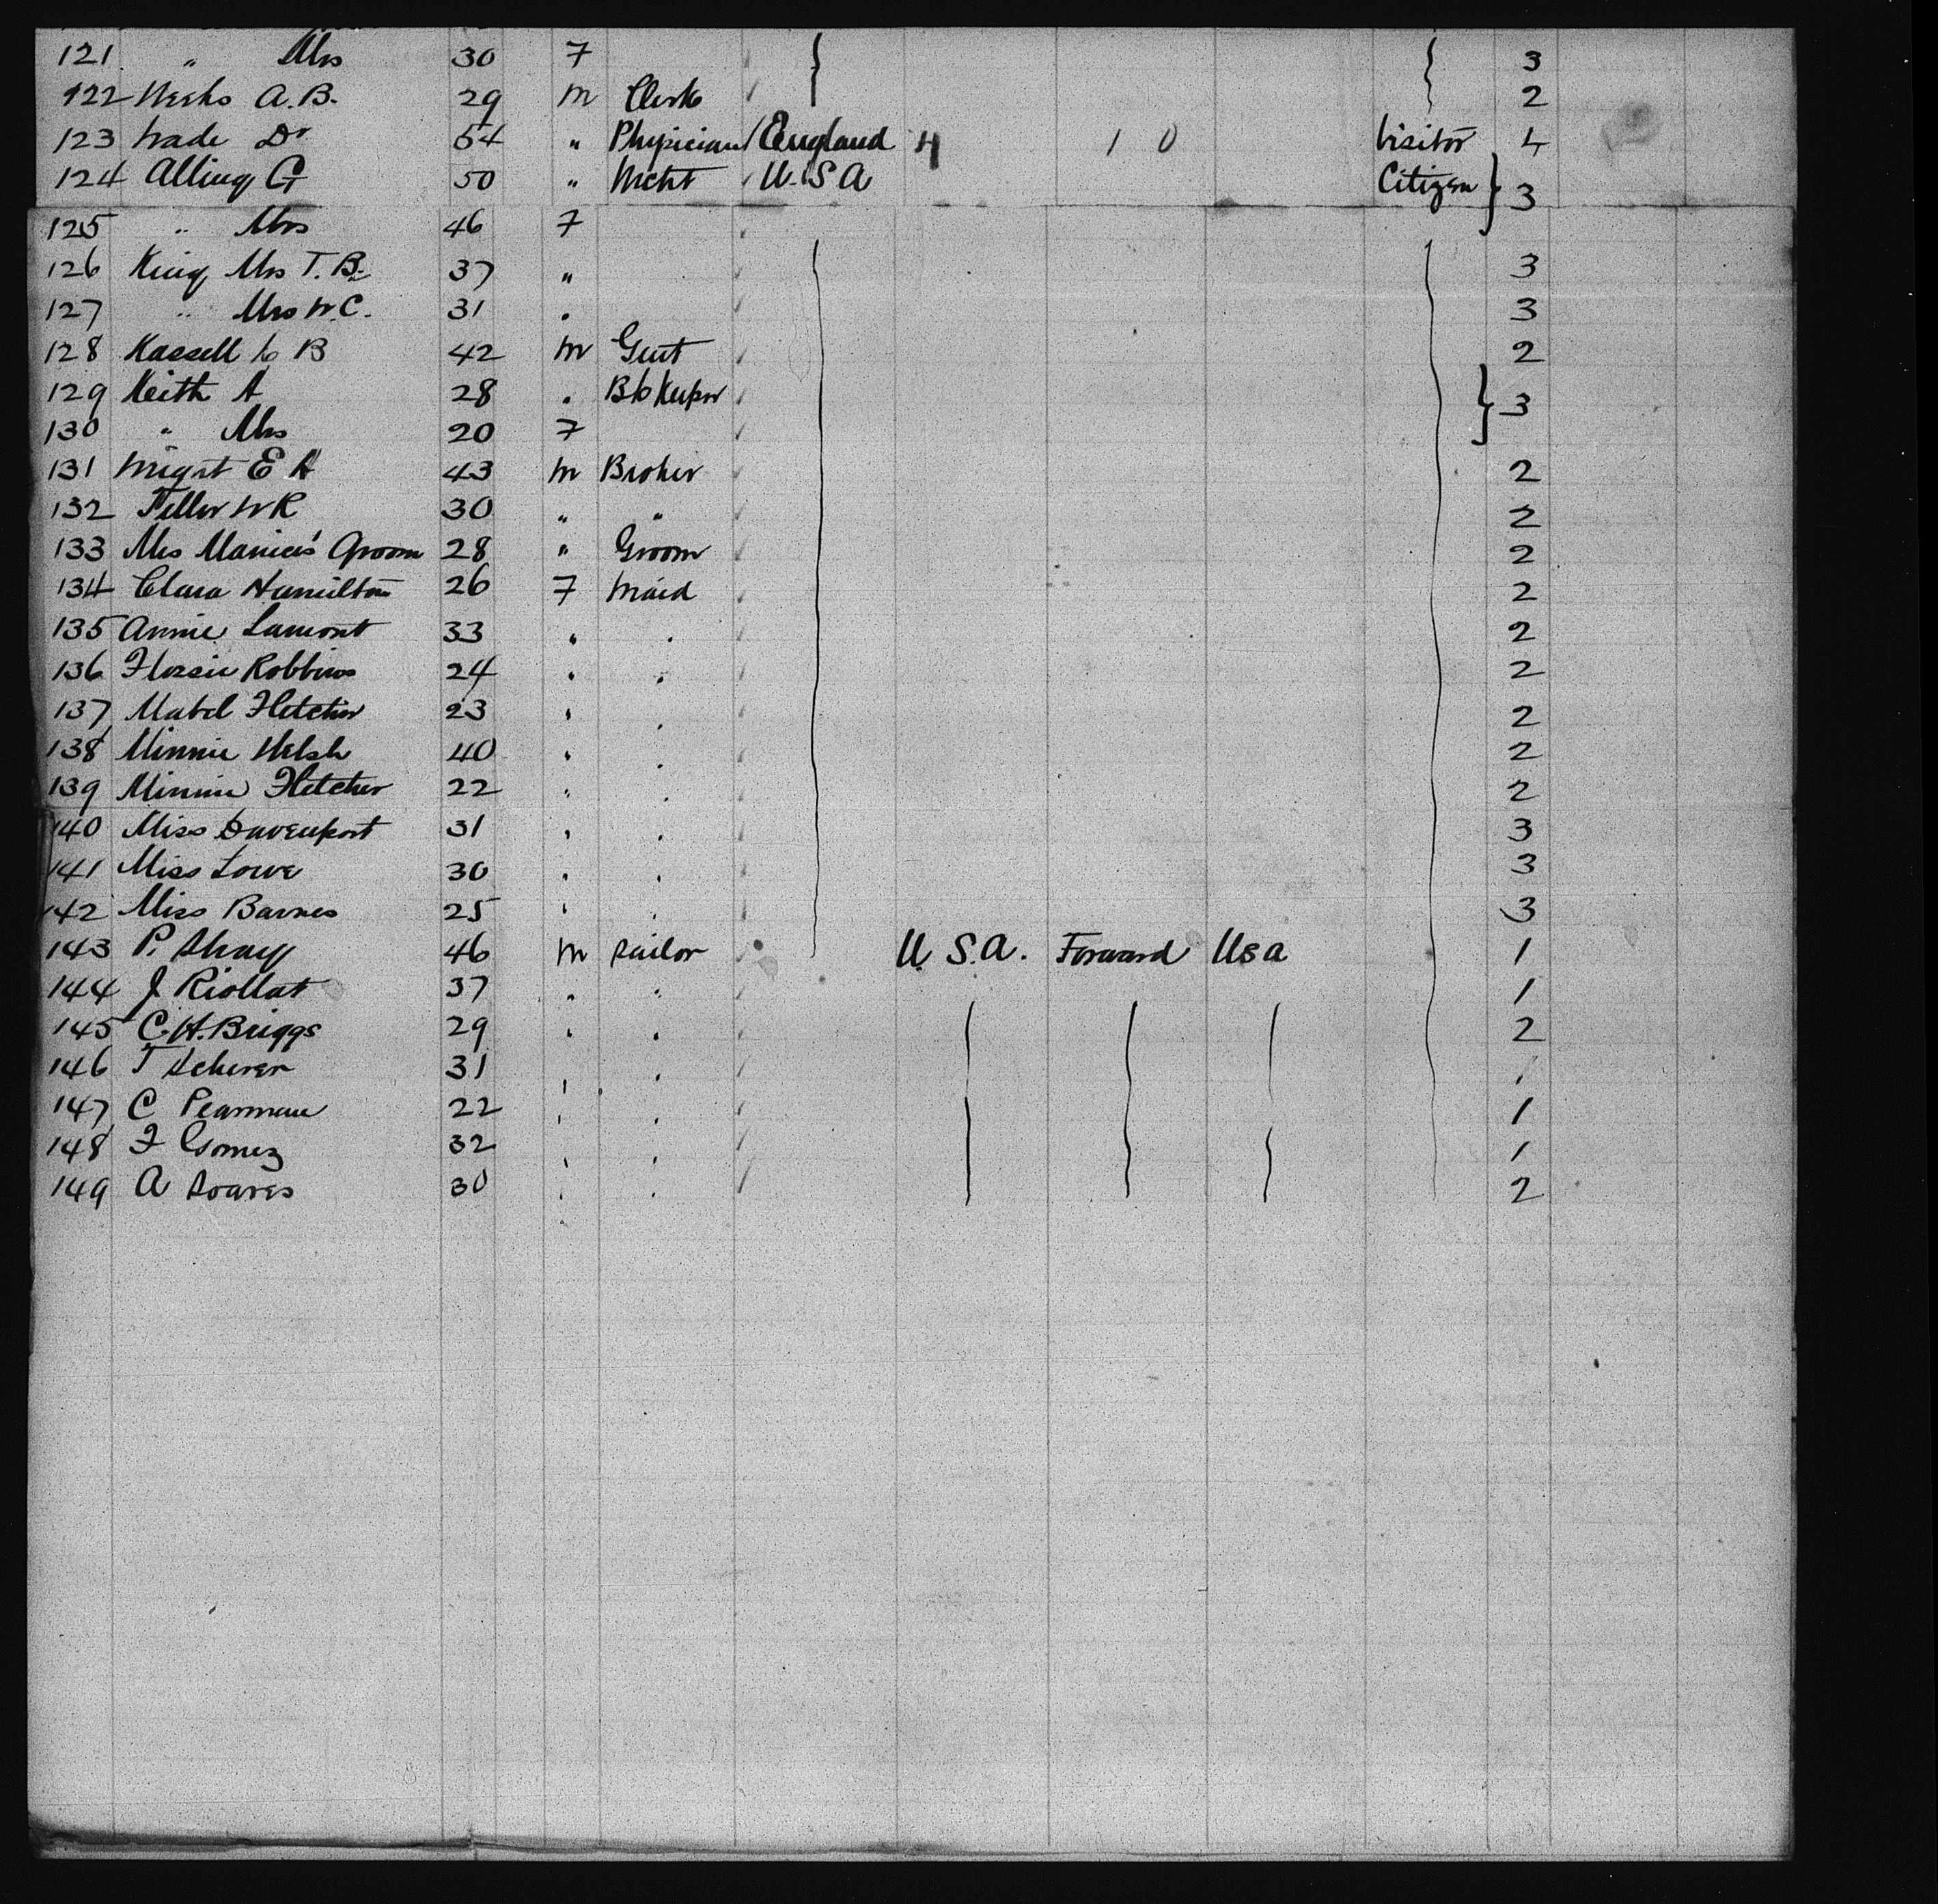 121 " Mrs 30 F 3
122 Weeks A. B. 29 M Clerk 2
123 Wade Dr 54 " Physician England 4 1 0 Visitor 4
124 Alling G 50 " Mcht U.S.A Citizen } 3
125 " Mrs 46 F
126 King Mrs T. B. 37 " 3
127 " Mrs W.C. 31 " 3
128 Kassell C B 42 M Gent 2
129 Keith A 28 " Bkkeeper } 3
130 " Mrs 20 F
131 E H 43 M Broker 2
132 Feller W R 30 " " 2
133 Mrs Manice's Groom 28 " Groom 2
134 Clara Hamilton 26 F Maid 2
135 Annie Lamont 33 " " 2
136 Flossie Robbins 24 " " 2
137 Mabel Fletcher 23 " " 2
138 Minnie Welsh 40 " " 2
139 Minnie Fletcher 22 " " 2
140 Miss Davenport 31 " " 3
141 Miss Lowe 30 " " 3
142 Miss Barnes 25 " " 3
143 P. Shay 46 M Sailor U.S.A. Forward USA 1
144 J Riollat 37 " " 1
145 C.H. Briggs 29 " " 2
146 T Scherer 31 " " 1
147 C Pearman 22 " " 1
148 F Gomez 32 " " 1
149 A Soares 30 " " 2